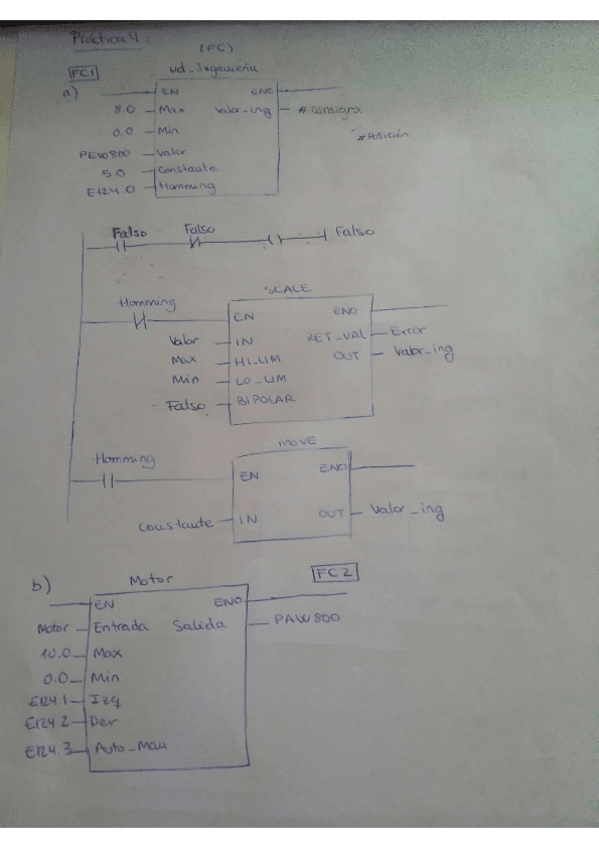 Práctica 4:
(FC)
FC1 Ud_Ingeniería
a) EN ENO
8.0 Max Valor_ing #Consigna
0.0 Min
#Posición
PEW800 Valor
5.0 Constante
E124.0 Homming
Falso Falso
( ) Falso
SCALE
Homming
EN ENO
Valor IN RET_VAL Error
Max HI_LIM OUT Valor_ing
Min LO_LIM
Falso BIPOLAR
MOVE
Homming
EN ENO
Constante IN OUT Valor_ing
b) Motor FC2
EN ENO
Motor Entrada Salida PAW800
10.0 Max
0.0 Min
E124.1 Izq
E124.2 Der
E124.3 Auto_Man